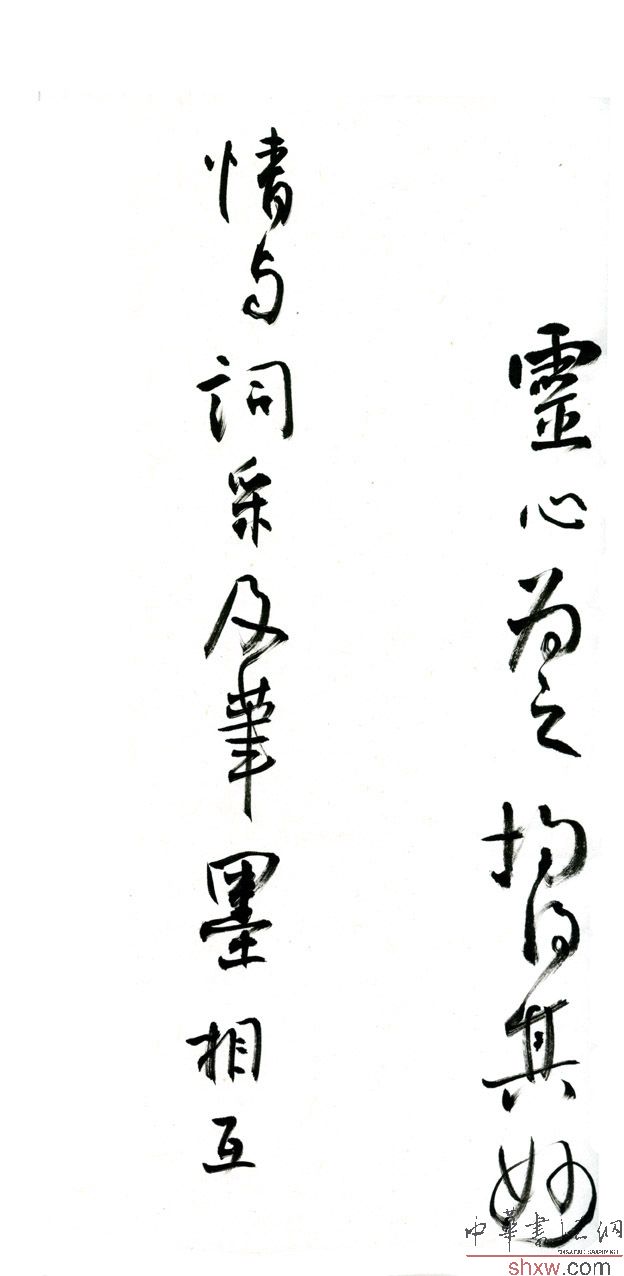 靈心為之均得其妙
情与詞采及筆墨相互
中華書法網
shxw.com